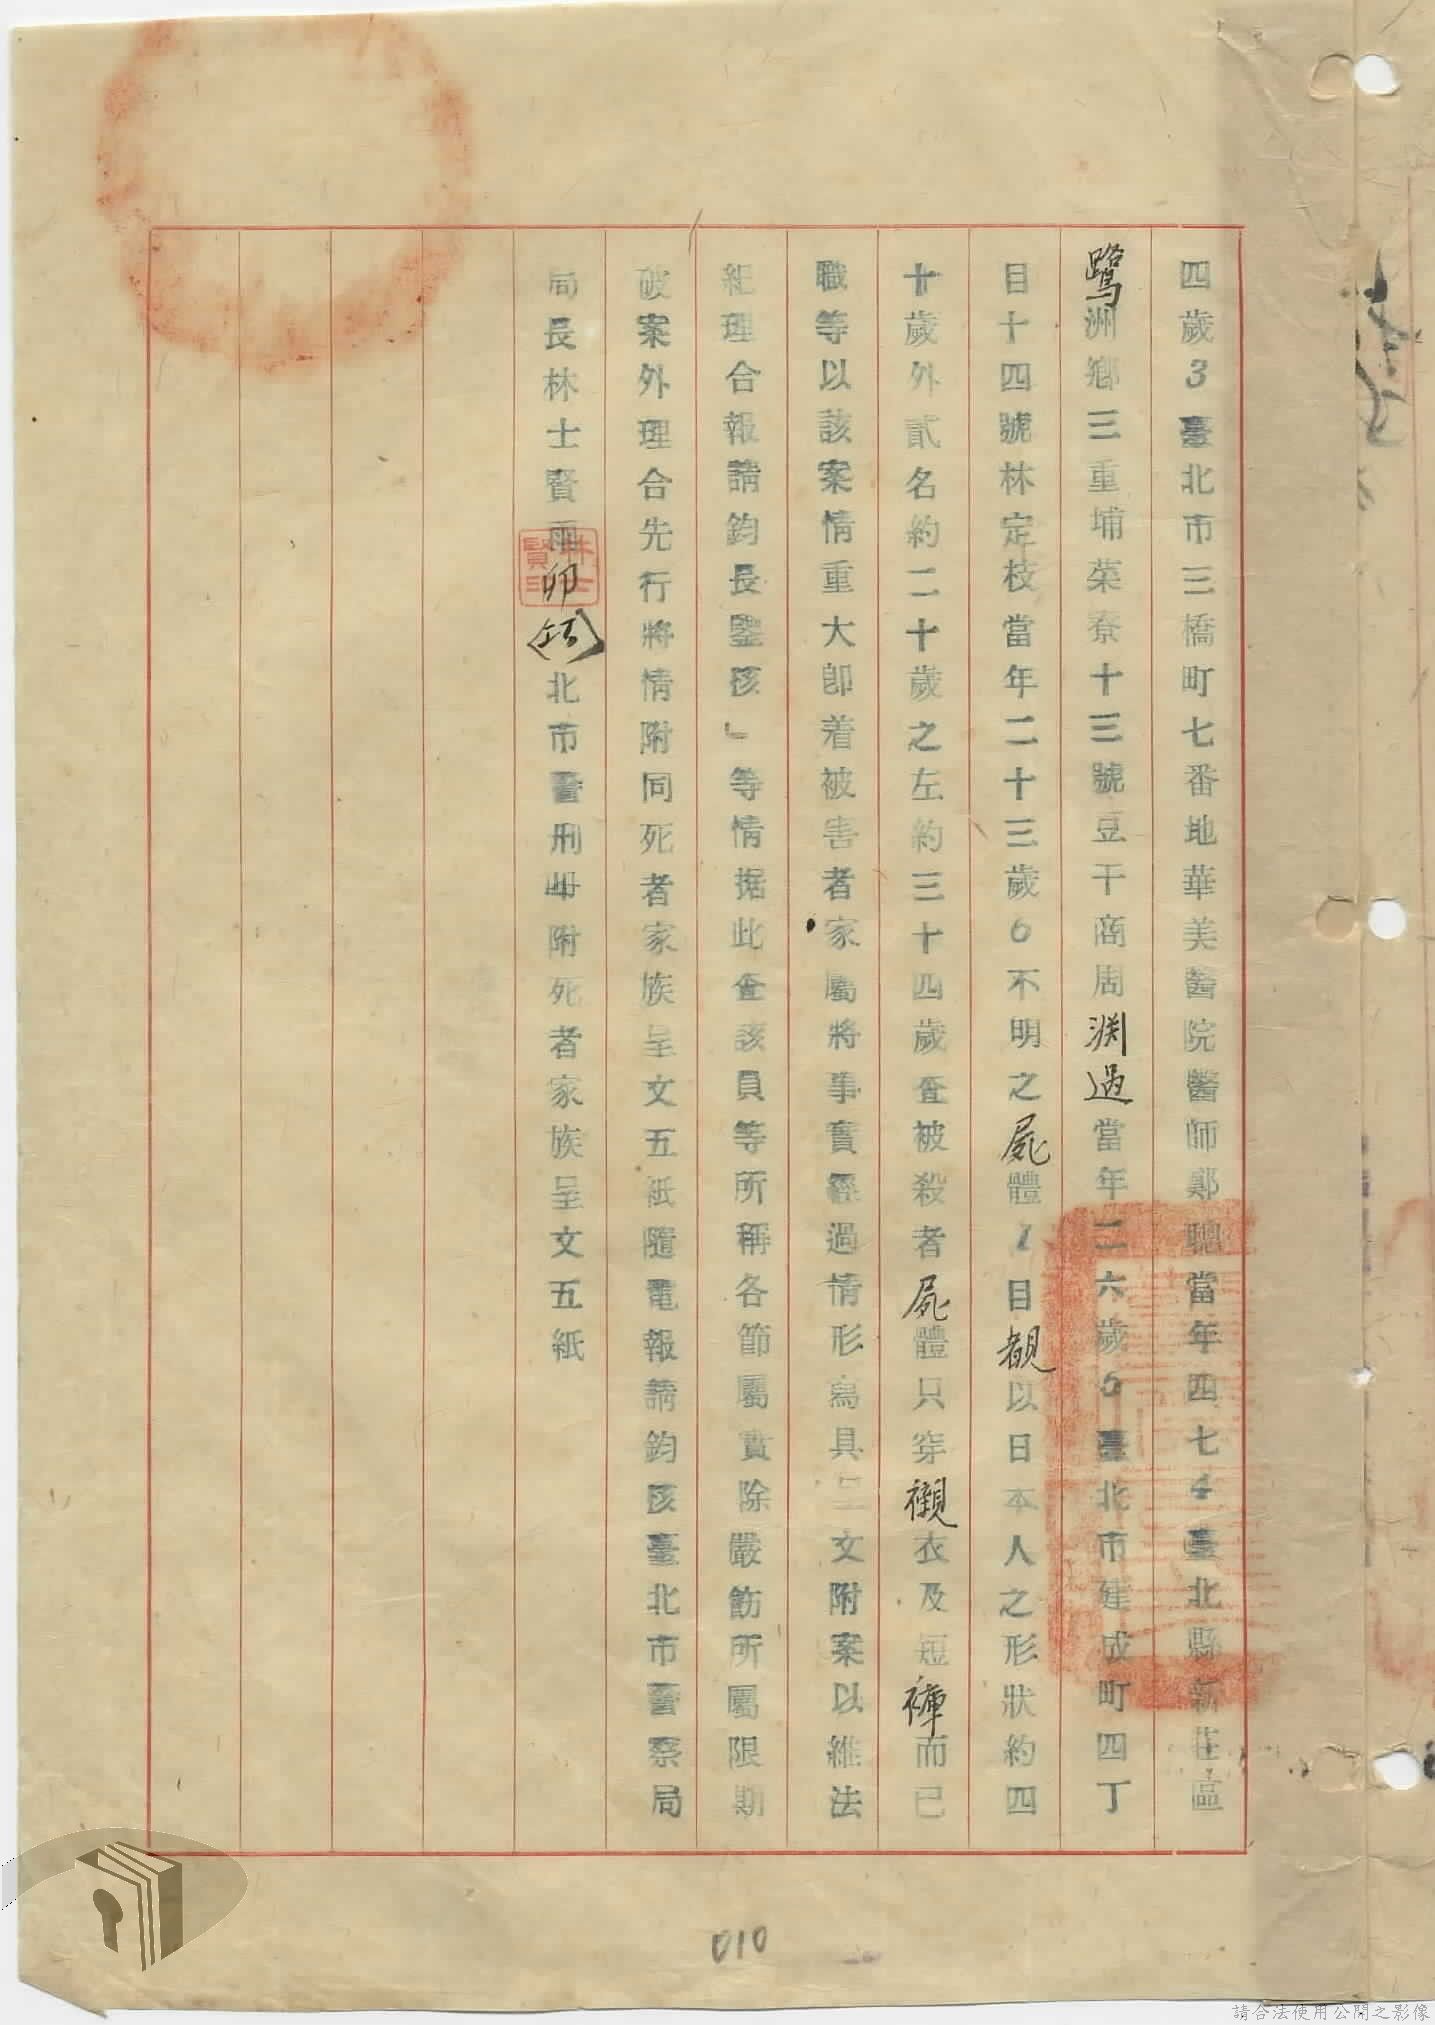 四歲3臺北市三橋町七番地華美醫院醫師鄭聰當年四七4臺北縣新莊區
鷺洲鄉三重埔菜寮十三號豆干商周渊過當年二六歲5臺北市建成町四丁
目十四號林定枝當年二十三歲6不明之屍體1目觀以日本人之形狀約四
十歲外貳名約二十歲之左約三十四歲查被殺者屍體只穿襯衣及短褲而已
職等以該案情重大即着被害者家屬將事實經過情形寫具呈文附案以維法
紀理合報請鈞長鑒核」等情据此查該員等所稱各節屬實除嚴飭所屬限期
破案外理合先行將情附同死者家族呈文五紙隨電報請鈞核臺北市警察局
局長林士賢 卯 北市警刑 附死者家族呈文五紙
010
請合法使用公開之影像